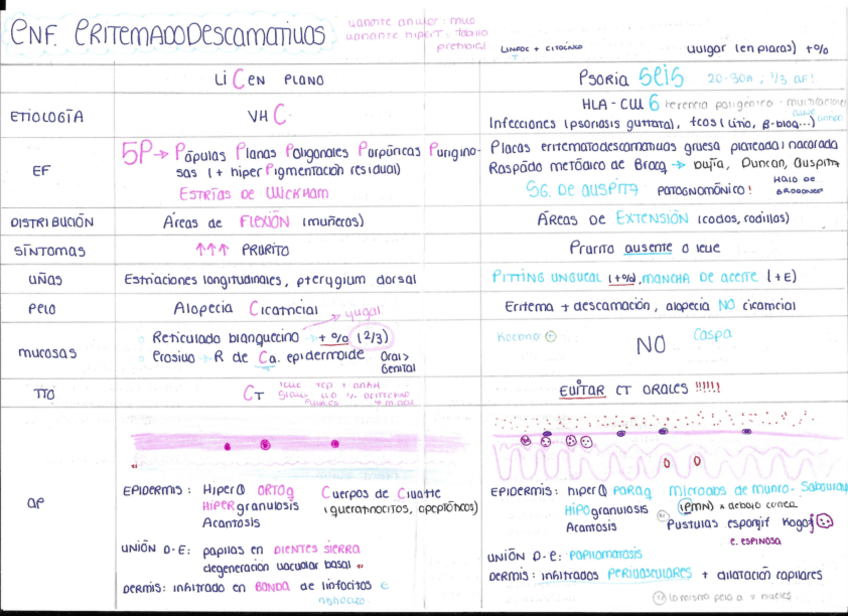 ENF. ERITEMATODESCAMATIVAS
variante anular: muc
variante hiperT: tobillo
pretibial
LINFOC + CITOCINAS
T
vulgar (en placas) +%
LiCEN PLANO
PSoria SEiS 20-30A, 1/3 AF!
ETIOLOGÍA
VHC
HLA-CW6 herencia poligénica - multifactorial
Infecciones (psoriasis guttata), fcos (Litio, β-bloq...)
EF
5P → Pápulas Planas Poligonales Purpúricas Purigino-
sas (+ hiperPigmentación residual)
ESTRÍAS DE WICKHAM
Placas eritematodescamativas gruesa plateada/nacarada
Raspado metódico de Brocq → bujía, Duncan, Auspitz
SG. DE AUSPITZ PATOGNOMÓNICO!
HALO DE
WORONOFF
DISTRIBUCIÓN
Áreas de FLEXIÓN (muñecas)
ÁREAS DE EXTENSIÓN (codos, rodillas)
SÍNTOMAS
↑↑↑ PRURITO
Prurito ausente o leve
UÑAS
Estriaciones longitudinales, pterygium dorsal
PITTING UNGUEAL (+%), MANCHA DE ACEITE (+E)
PELO
Alopecia Cicatricial
Eritema + descamación, alopecia NO cicatricial
mucosas
Reticulado blanquecino → +% (2/3)
yugal
Erosivo → R de Ca. epidermoide
Oral>
Genital
NO
Caspa
TTO
CT
EVITAR CT ORALES !!!!!!
AP
EPIDERMIS: HiperQ ORTOQ
HIPERgranulosis
Acantosis
Cuerpos de Civatte
(queratinocitos, apoptóticos)
UNIÓN D-E: papilas en DIENTES SIERRA
degeneración vacuolar basal
DERMIS: infiltrado en BANDA de linfocitos
EPIDERMIS: hiperQ PARAQ
HIPOgranulosis
Acantosis
Microabs de Munro - Sabouraud
(PMN) x debajo cornea
Pústulas espongif Kogoj
E. ESPINOSA
UNIÓN D-E: PAPILOMATOSIS
DERMIS: infiltrados PERIVASCULARES + dilatación capilares
lo mismo pelo a